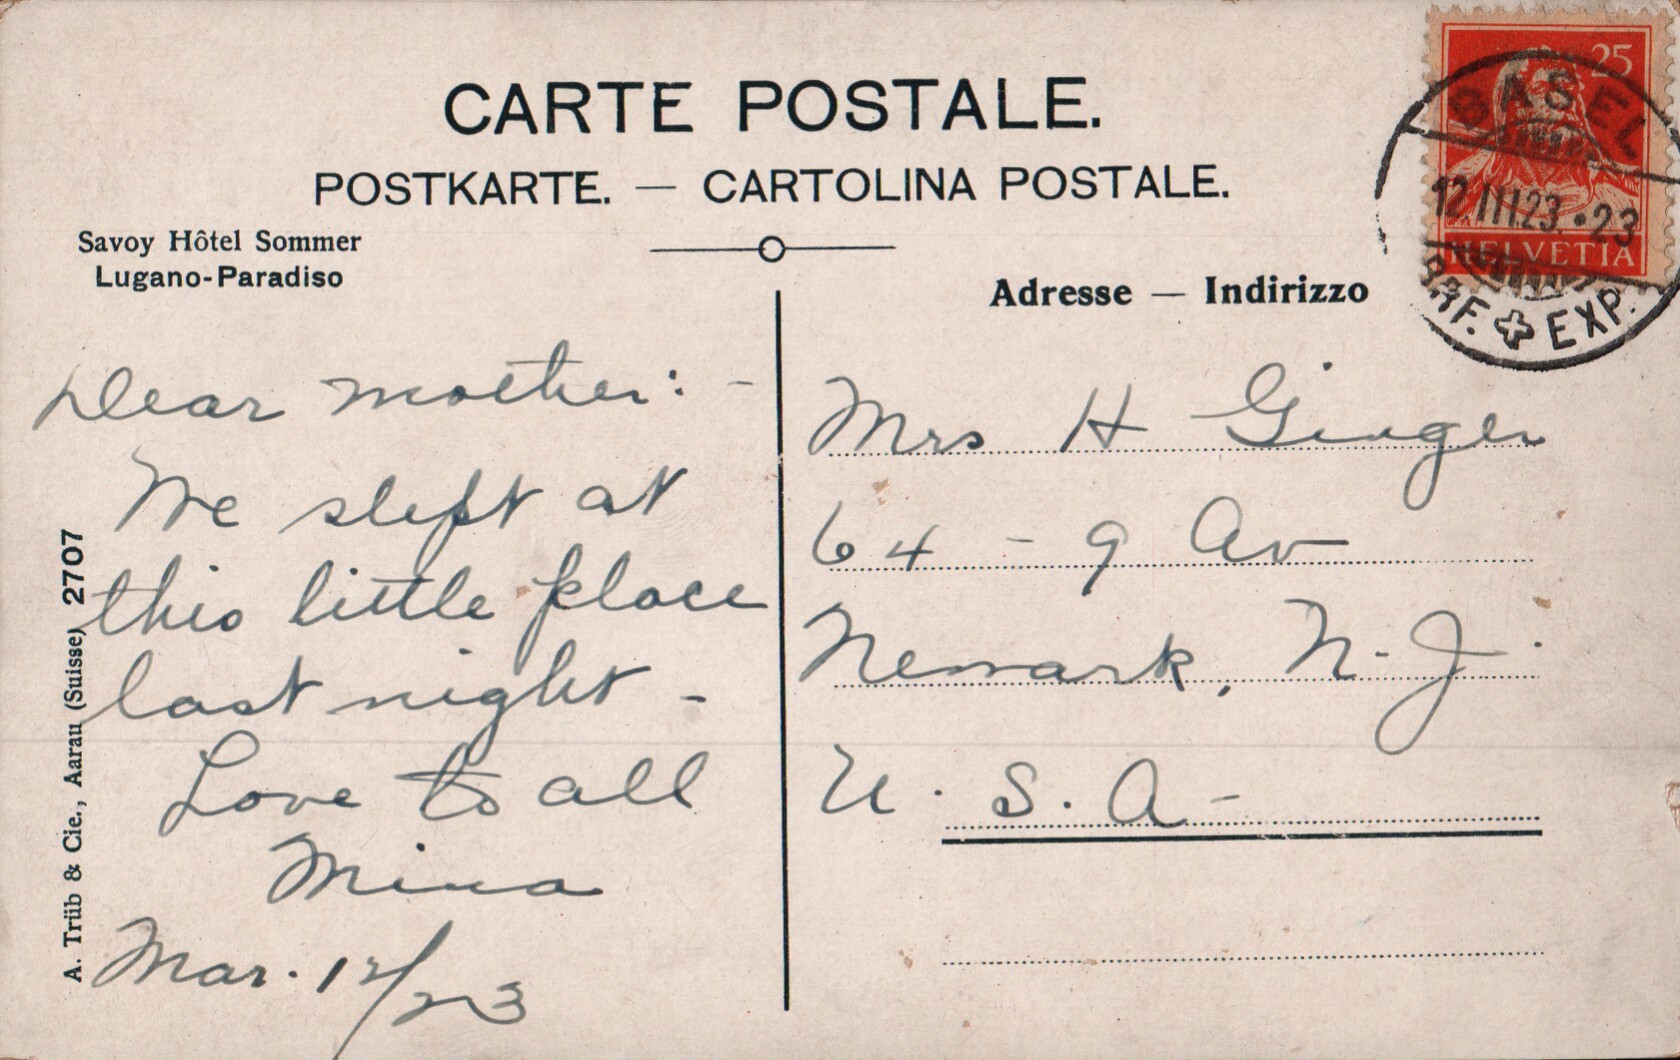 CARTE POSTALE.
POSTKARTE. — CARTOLINA POSTALE.
Savoy Hôtel Sommer
Lugano-Paradiso
Adresse — Indirizzo
25
HELVETIA
BASEL
12.III.23.•23
BRF. EXP.
Dear mother: -
We slept at
this little place
last night -
Love to all
Mina
Mar. 12/23
Mrs H Ginger
64 - 9 Av
Newark, N. J.
U. S. A -
A. Trüb & Cie., Aarau (Suisse) 2707